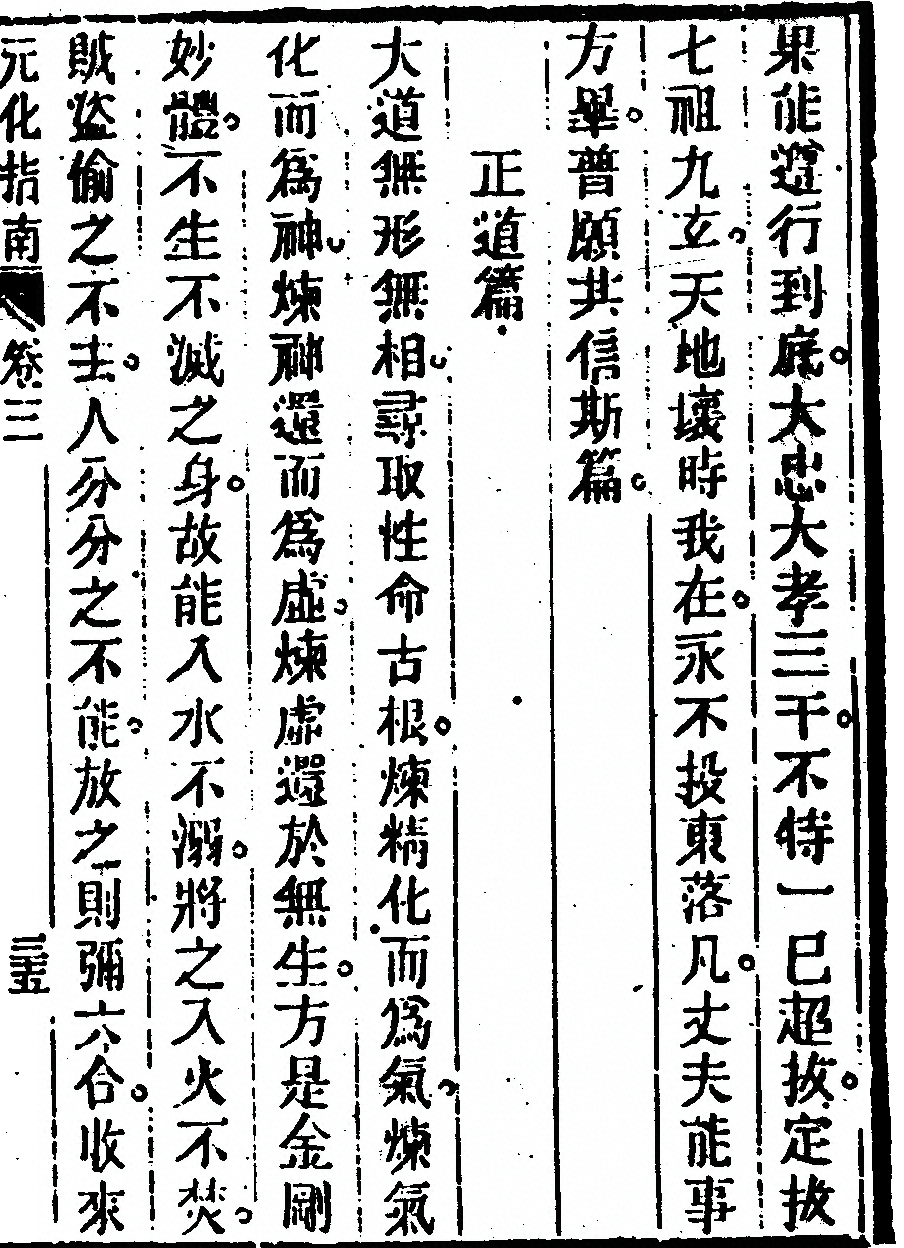 果能遵行到底大忠大孝三千不特一已超拔定拔
七祖九玄天地壞時我在永不投東落凡丈夫能事
方畢普願共信斯篇
正道篇
大道無形無相尋取性命古根煉精化而爲氣煉氣
化而爲神煉神還而爲虛煉虛還於無生方是金剛
妙體不生不滅之身故能入水不溺將之入火不焚
賊盜偷之不去人分分之不能放之則彌六合收來
元化指南 卷三 三五